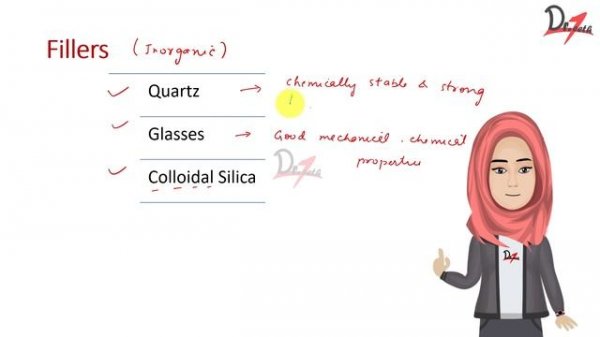 Fillers (Inorganic)
Quartz → chemically stable & strong
Glasses → Good mechanical . chemical
properties
Colloidal Silica